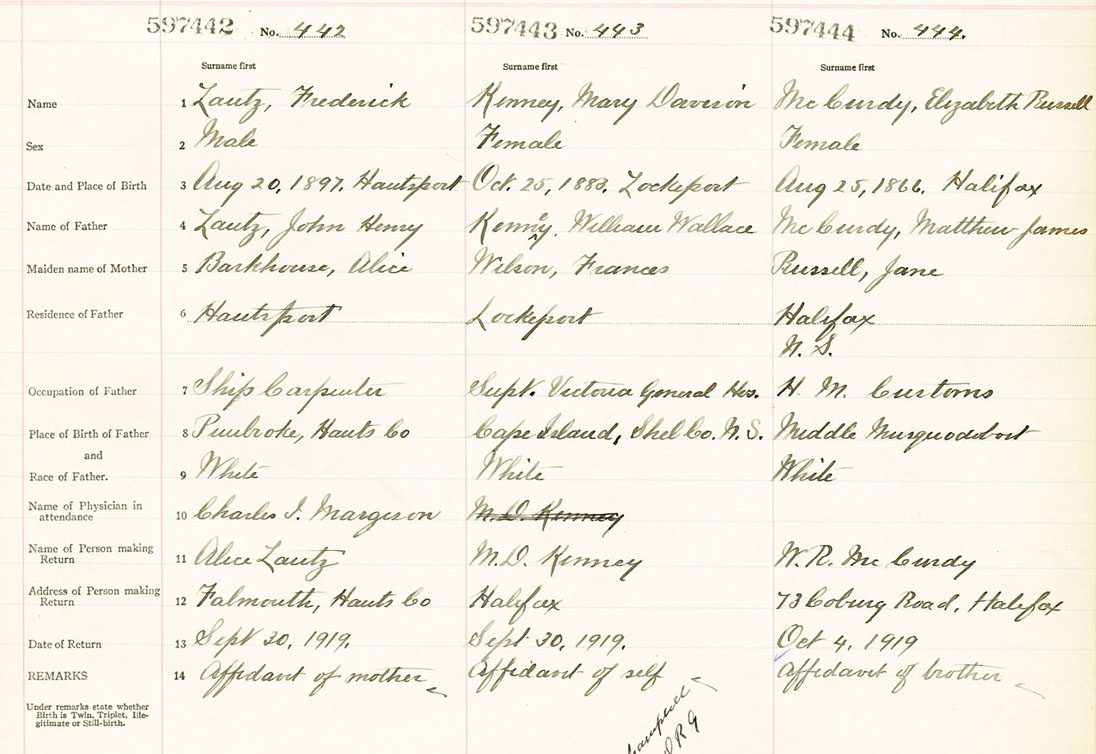 597442 No. 442 597443 No. 443 597444 No. 444.
Surname first Surname first Surname first
Name 1 Zautz, Frederick Kenney, Mary Davison McCurdy, Elizabeth Russell
Sex 2 Male Female Female
Date and Place of Birth 3 Aug 20, 1897. Hantsport Oct. 25, 1883. Lockeport Aug 25, 1866. Halifax
Name of Father 4 Zautz, John Henry Kenney, William Wallace McCurdy, Matthew James
Maiden name of Mother 5 Barkhouse, Alice Wilson, Frances Russell, Jane
Residence of Father 6 Hantsport Lockeport Halifax
N. S.
Occupation of Father 7 Ship Carpenter Supt. Victoria General Hos. H. M. Customs
Place of Birth of Father 8 Pembroke, Hants Co Cape Island, Shel Co. N. S. Middle Musquodoboit
and
Race of Father. 9 White White White
Name of Physician in
attendance 10 Charles I. Margeson M. D. Kenney
Name of Person making
Return 11 Alice Zautz M. D. Kenney W. R. McCurdy
Address of Person making
Return 12 Falmouth, Hants Co Halifax 73 Coburg Road, Halifax
Date of Return 13 Sept 30, 1919. Sept 30, 1919. Oct 4, 1919
REMARKS 14 Affidavit of mother Affidavit of self Affidavit of brother
Under remarks state whether
Birth is Twin, Triplet, Ille-
gitimate or Still-birth.
D R G